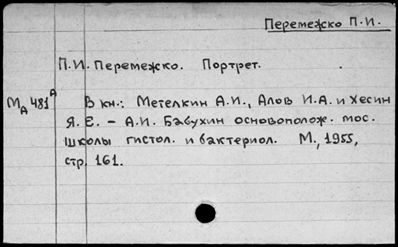 Перемежко П.И.
П.И. Перемежко. Портрет.
МА 481А В кн.: Метелкин А.И., Алов И.А. и Хесин
Я.Е. – А.И. Бабухин основополож. мос.
школы гистол. и бактериол. М., 1955,
стр. 161.